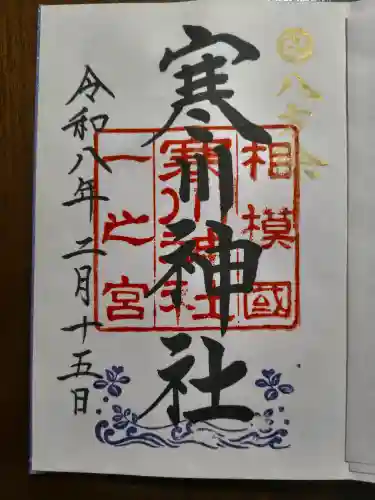 八方除
寒川神社
相模國
寒川神社
一之宮
令和八年二月十五日